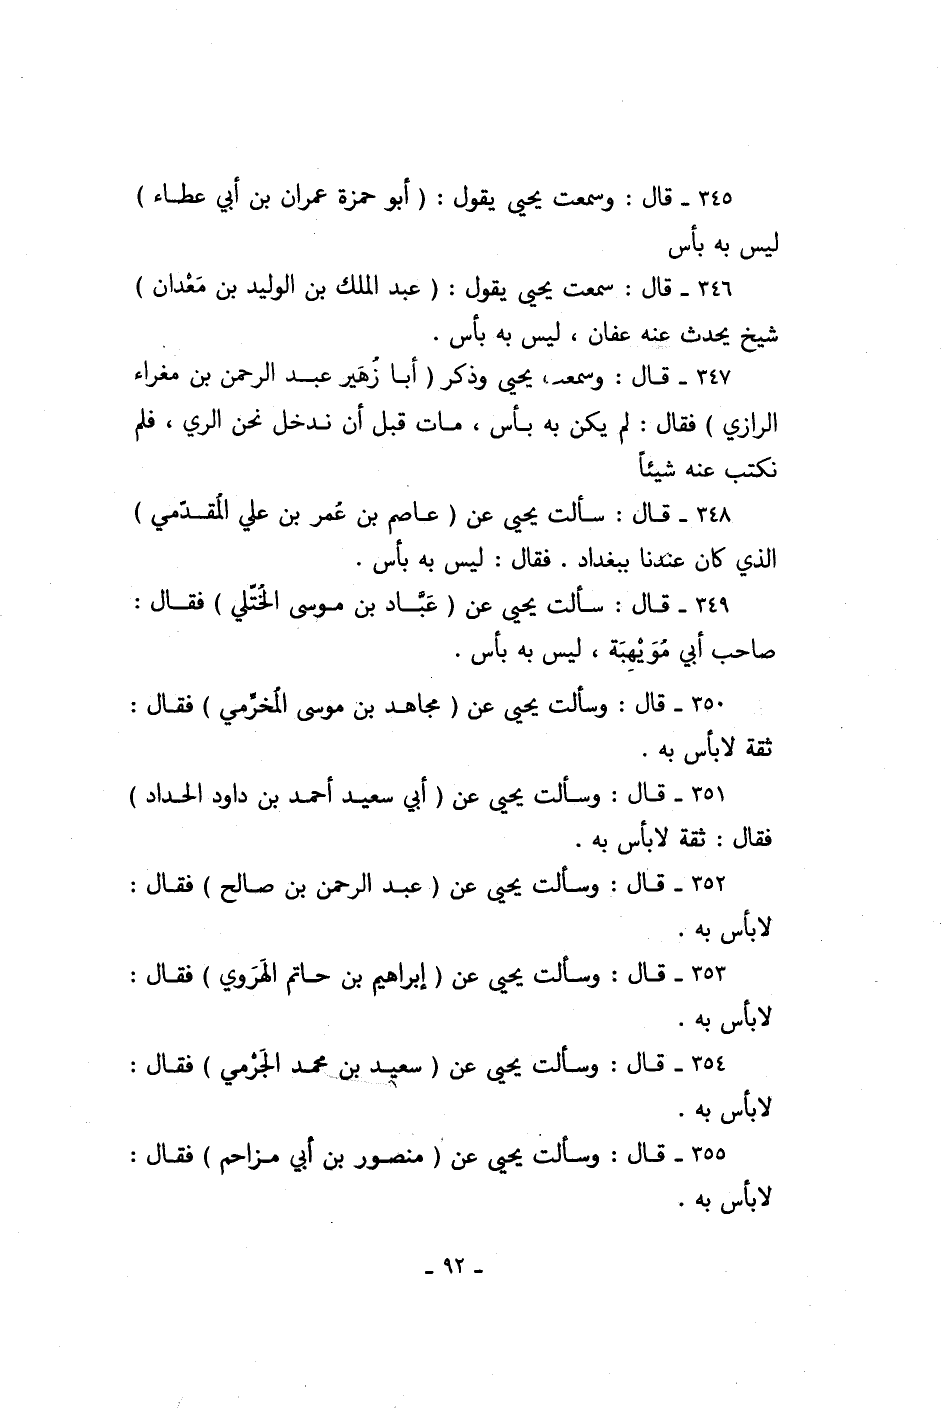 ٣٤٥ ـ قال : وسمعت يحيى يقول : ( أبو حمزة عمران بن أبي عطاء )
ليس به بأس
٣٤٦ ـ قال : سمعت يحيى يقول : ( عبد الملك بن الوليد بن مَعْدان )
شيخ يحدث عنه عفان ، ليس به بأس .
٣٤٧ ـ قال : وسمعت يحيى وذكر ( أبا زُهَير عبد الرحمن بن مغراء
الرازي ) فقال : لم يكن به بأس ، مات قبل أن ندخل نحن الري ، فلم
نكتب عنه شيئاً
٣٤٨ ـ قال : سألت يحيى عن ( عاصم بن عُمر بن علي المُقدّمي )
الذي كان عندنا ببغداد . فقال : ليس به بأس .
٣٤٩ ـ قال : سألت يحيى عن ( عَبَّاد بن موسى الخُتَّلي ) فقال :
صاحب أبي مُوَيْهِبَة ، ليس به بأس .
٣٥٠ ـ قال : وسألت يحيى عن ( مجاهد بن موسى المُخرَّمي ) فقال :
ثقة لابأس به .
٣٥١ ـ قال : وسألت يحيى عن ( أبي سعيد أحمد بن داود الحداد )
فقال : ثقة لابأس به .
٣٥٢ ـ قال : وسألت يحيى عن ( عبد الرحمن بن صالح ) فقال :
لابأس به .
٣٥٣ ـ قال : وسألت يحيى عن ( إبراهيم بن حاتم الهَرَوي ) فقال :
لابأس به .
٣٥٤ ـ قال : وسألت يحيى عن ( سعيد بن محمد الجَرْمي ) فقال :
لابأس به .
٣٥٥ ـ قال : وسألت يحيى عن ( منصور بن أبي مزاحم ) فقال :
لابأس به .
ـ ٩٢ ـ